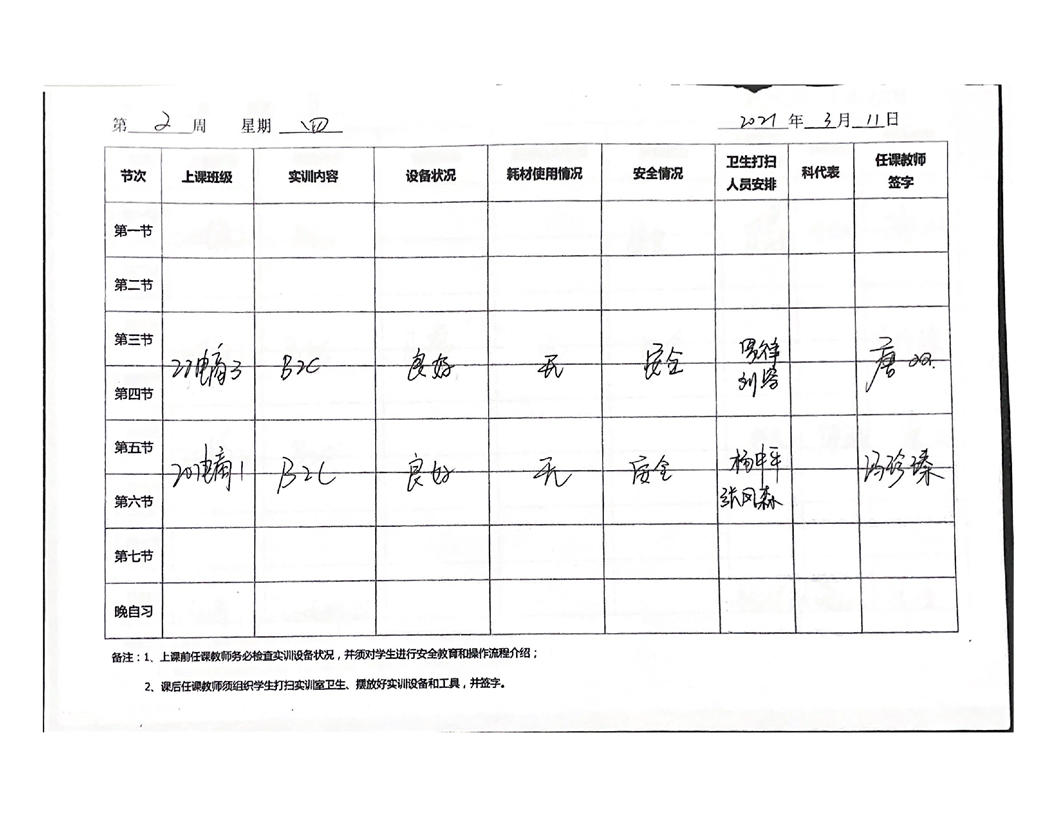 第 2 周 星期 四 2021 年 3 月 11 日
节次 上课班级 实训内容 设备状况 耗材使用情况 安全情况 卫生打扫人员安排 科代表 任课教师签字
第一节
第二节
第三节
电商3 B2C 良好 无 安全 唐
第四节
第五节
20电商1 B2C 良好 无 安全 杨中平 冯珍臻
第六节 张风森
第七节
晚自习
备注：1、上课前任课教师务必检查实训设备状况，并须对学生进行安全教育和操作流程介绍；
2、课后任课教师须组织学生打扫实训室卫生、摆放好实训设备和工具，并签字。